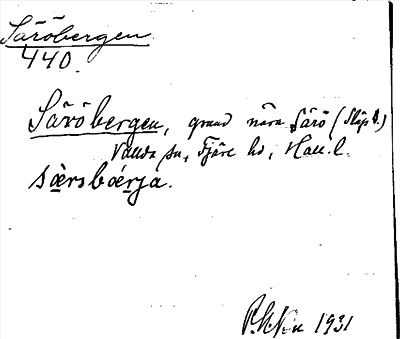 Säröbergen.
440.
Säröbergen, grund nära Särö (Släp s.)
Vallda sn, Fjäre hd, Hall. l.
sæ̀rsbǿrja.
1931